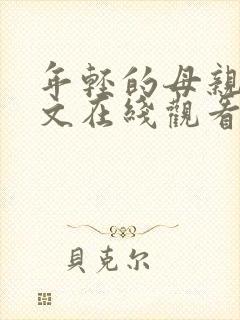 年轻的母親
文在綫觀看
貝克尔